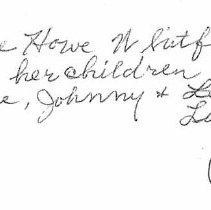 e Howe N Satf
her children
e, Johnny &